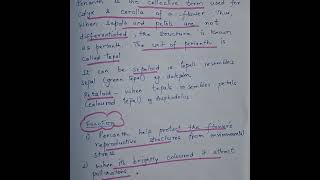 Perianth is the collective term used for
calyx & corolla of a flower. Thus,
when sepals and petals are not
differentiated, the structure is known
as perianth. The unit of perianth is
called tepal
It can be sepaloid ie tepals resembles
sepal (green tepal) eg
Petaloid - when tepals resembles petals
(coloured tepal) eg Asphodelus
Function
1) Perianth help protect the flower's
reproductive structures from environmental
stress
2) when its brightly coloured it attract
pollinators.